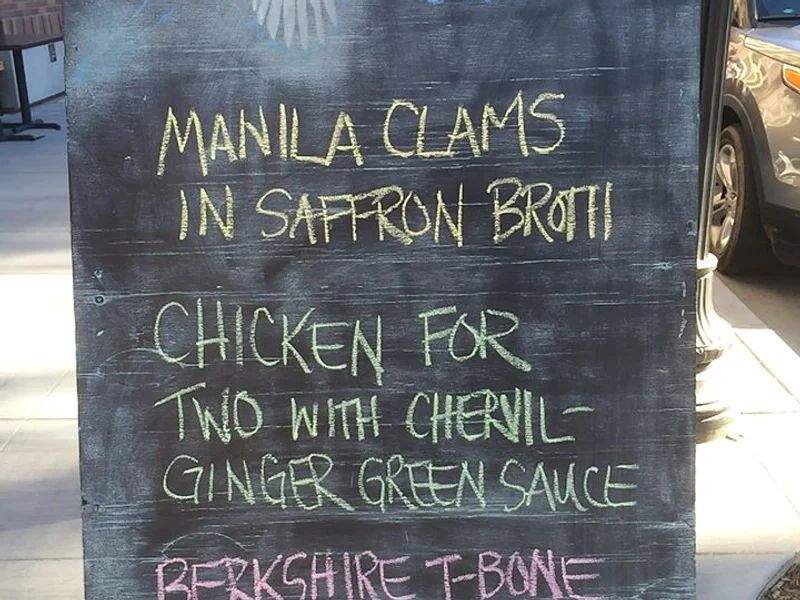 MANILA CLAMS
IN SAFFRON BROTH
CHICKEN FOR
TWO WITH CHERVIL-
GINGER GREEN SAUCE
BERKSHIRE T-BONE